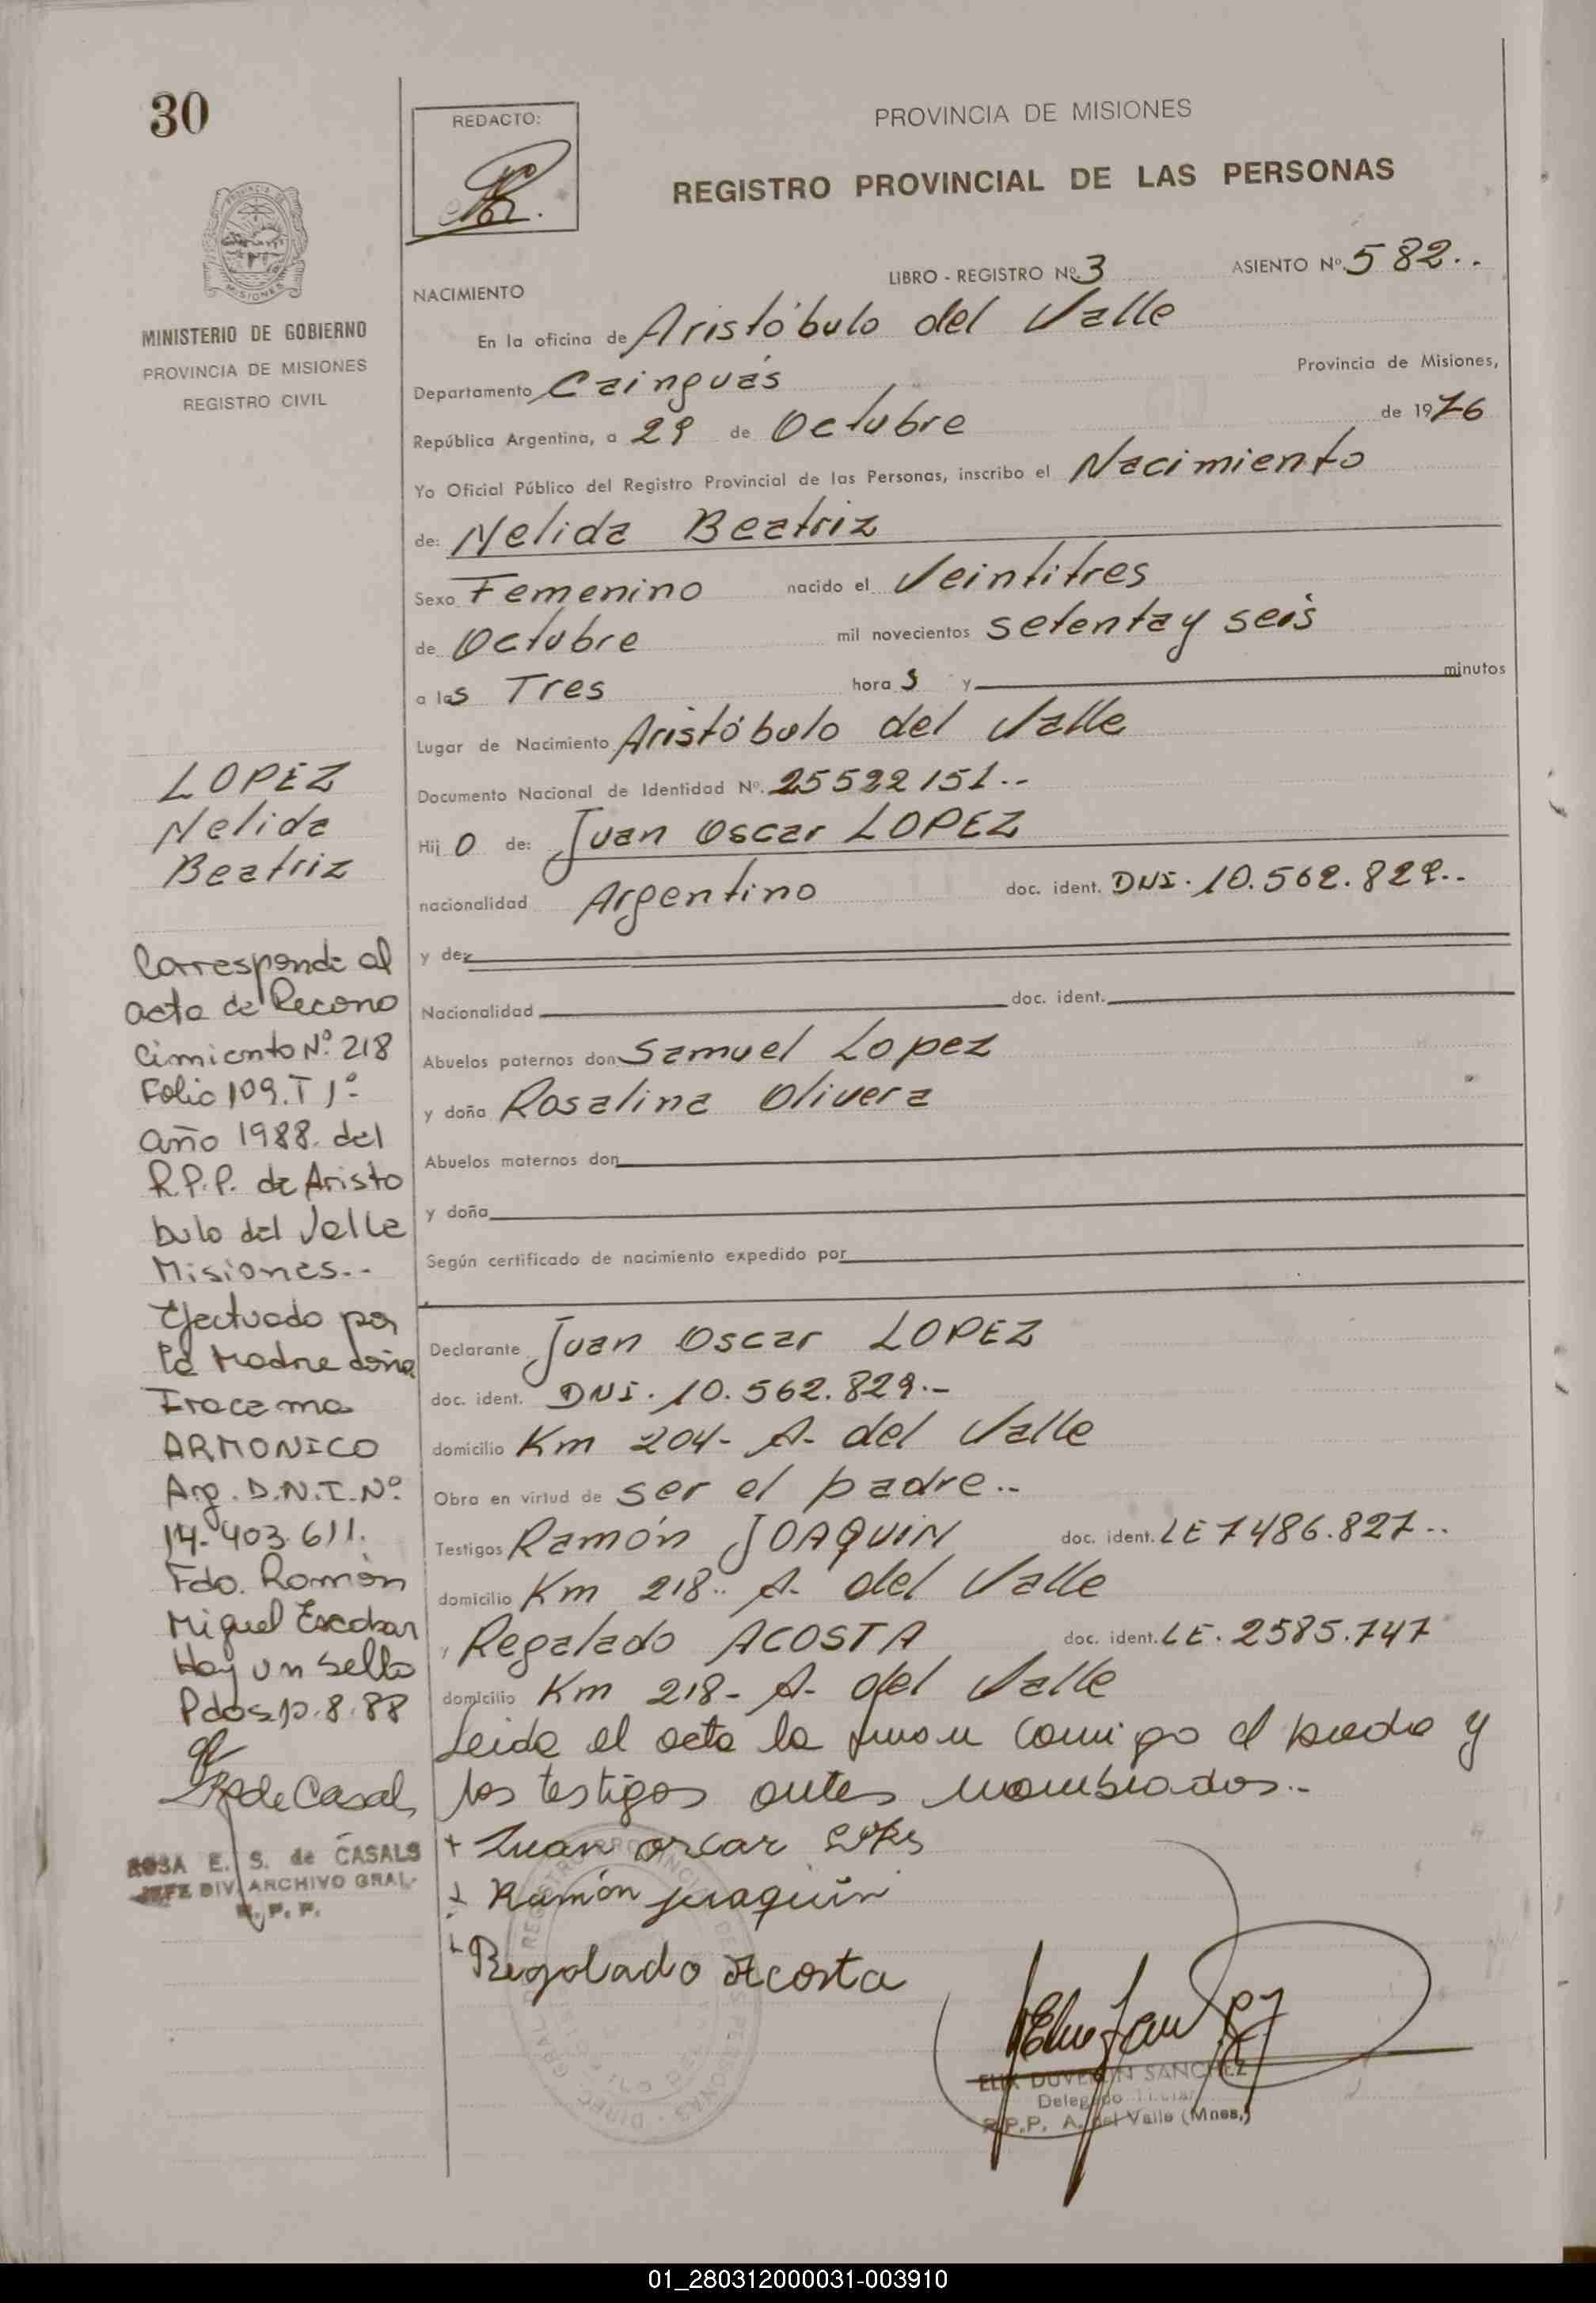 30
REDACTO:
PROVINCIA DE MISIONES
REGISTRO PROVINCIAL DE LAS PERSONAS
MISIONES
MINISTERIO DE GOBIERNO
PROVINCIA DE MISIONES
REGISTRO CIVIL
LIBRO - REGISTRO Nº 3 ASIENTO Nº 582..
NACIMIENTO
En la oficina de Aristóbulo del Valle
Departamento Cainguás Provincia de Misiones,
República Argentina, a 29 de Octubre de 1976
Yo Oficial Público del Registro Provincial de las Personas, inscribo el Nacimiento
de: Nelida Beatriz
Sexo Femenino nacido el Veintitres
de Octubre mil novecientos setenta y seis
a las Tres hora s y minutos
Lugar de Nacimiento Aristóbulo del Valle
Documento Nacional de Identidad Nº. 25522151..
Hij o de: Juan Oscar LOPEZ
nacionalidad Argentino doc. ident. DNI. 10.562.829..
y de:
Nacionalidad doc. ident.
Abuelos paternos don Samuel Lopez
y doña Rosalina Olivera
Abuelos maternos don
y doña
Según certificado de nacimiento expedido por
Declarante Juan Oscar LOPEZ
doc. ident. DNI. 10.562.829.-
domicilio Km 204- A. del Valle
Obra en virtud de ser el padre..
Testigos Ramón JOAQUIN doc. ident. LE 7486.827..
domicilio Km 218.. A. del Valle
y Regalado ACOSTA doc. ident. LE. 2585.747
domicilio Km 218- A. del Valle
Leida el acta la firman comigo el padre y
los testigos antes nombrados..
+ Juan oscar
+ Ramón juaquin
+ Regalado Acosta
SANCHEZ
Delegado Titular
R.P.P. A. del Valle (Mnes.)
LOPEZ
Nelida
Beatriz
Corresponde al
acta de Recono
cimiento Nº 218
Folio 109. T 1º-
año 1988. del
R.P.P. de Aristo
bulo del Valle
Misiones..
Efectuado por
la Madre doña
Iracema
ARMONICO
Arg. D.N.I. Nº
14.403.611.
Fdo. Ramón
Miguel Escobar
Hay un sello
Pdos 10.8.88
de Casals
ROSA E. S. de CASALS
JEFE DIV. ARCHIVO GRAL.
R. P. P.
01_280312000031-003910